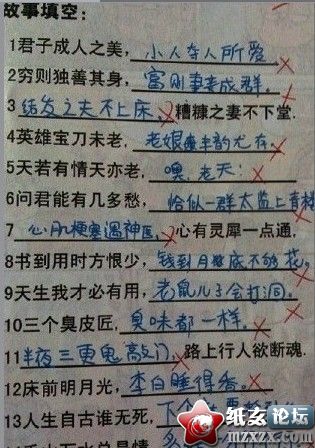 故事填空:
1君子成人之美,小人夺人所爱×
2穷则独善其身,富则妻妾成群。×
3结发之夫不上床,×糟糠之妻不下堂.
4英雄宝刀未老,老娘风韵尤存×
5天若有情天亦老,噢,老天:×
6问君能有几多愁,恰似一群太监上青楼
7心肌梗塞遇神医,×心有灵犀一点通,
8书到用时方恨少,钱到月底不够花。×
9天生我才必有用,老鼠儿子会打洞。×
10三个臭皮匠,臭味都一样。×
11半夜三更鬼敲门,×路上行人欲断魂.
12床前明月光,李白睡得香。×
13人生自古谁无死,下个
纸玄论坛
mzxzx.com